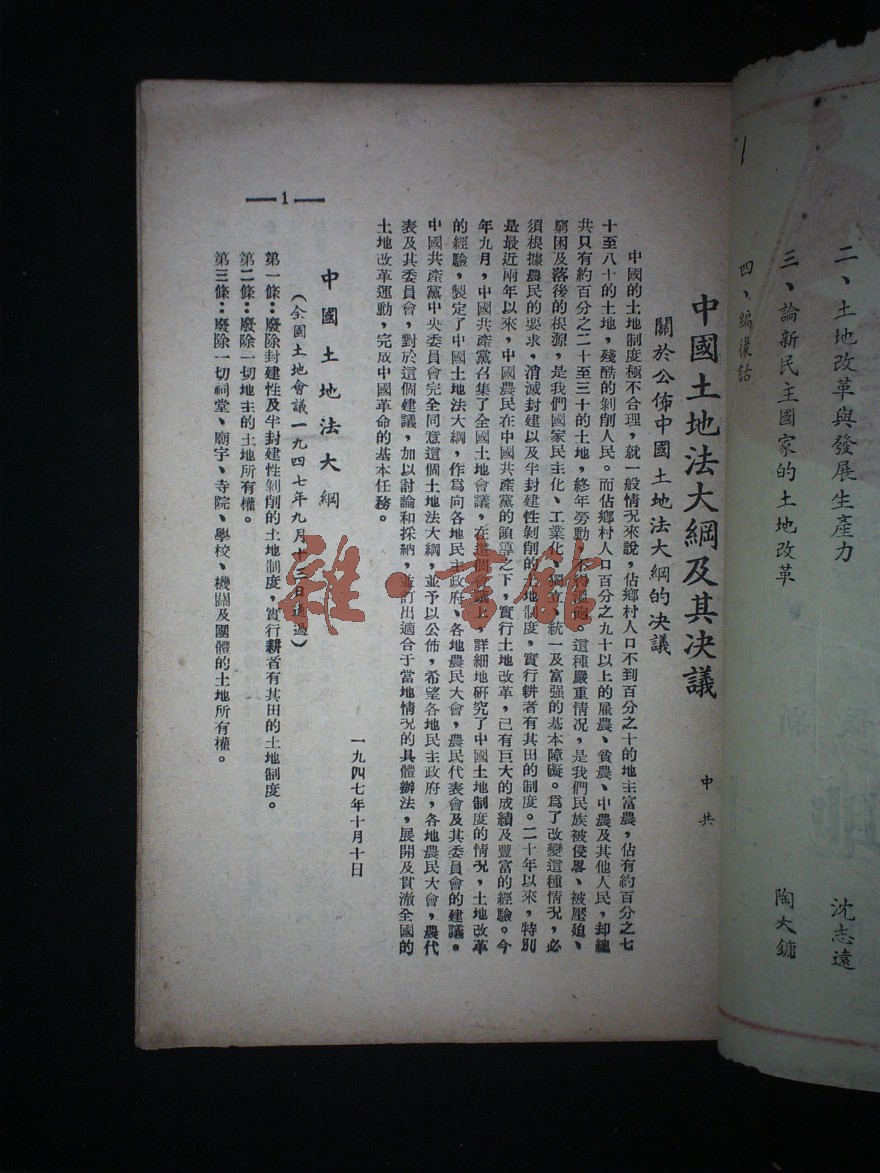 二、土地改革與發展生產力　沈志遠
三、論新民主國家的土地改革　陶大鏞
四、編後話
中國土地法大綱及其決議　中共
關於公佈中國土地法大綱的決議
中國的土地制度極不合理，就一般情况來說，佔鄉村人口不到百分之十的地主富農，佔有約百分之七
十至八十的土地，殘酷的剝削人民。而佔鄉村人口百分之九十以上的雇農、貧農、中農及其他人民，却總
共只有約百分之二十至三十的土地，終年勞動，不得溫飽。這種嚴重情况，是我們民族被侵畧、被壓迫、
窮困及落後的根源，是我們國家民主化、工業化、獨立、統一及富强的基本障礙。爲了改變這種情况，必
須根據農民的要求，消滅封建以及半封建性剝削的土地制度，實行耕者有其田的制度。二十年以來，特別
是最近兩年以來，中國農民在中國共產黨的領導之下，實行土地改革，已有巨大的成績及豐富的經驗。今
年九月，中國共產黨召集了全國土地會議，在這個會議上，詳細地研究了中國土地制度的情况，土地改革
的經驗，製定了中國土地法大綱，作爲向各地民主政府、各地農民大會，農民代表會及其委員會的建議。
中國共產黨中央委員會完全同意這個土地法大綱，並予以公佈，希望各地民主政府，各地農民大會，農代
表及其委員會，對於這個建議，加以討論和採納，並訂出適合于當地情况的具體辦法，展開及貫澈全國的
土地改革運動，完成中國革命的基本任務。
一九四七年十月十日
中國土地法大綱
（全國土地會議一九四七年九月十三日通過）
第一條：廢除封建性及半封建性剝削的土地制度，實行耕者有其田的土地制度。
第二條：廢除一切地主的土地所有權。
第三條：廢除一切祠堂、廟宇、寺院、學校、機關及團體的土地所有權。
—1—
雜·書館